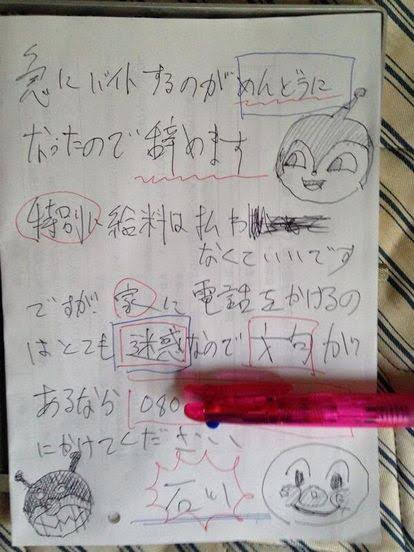 急にバイトするのがめんどうに
なったので辞めます
特別に給料は払わ
なくていいです
ですが家に電話をかけるの
はとても迷惑なので文句が
あるなら080
にかけてください
石川